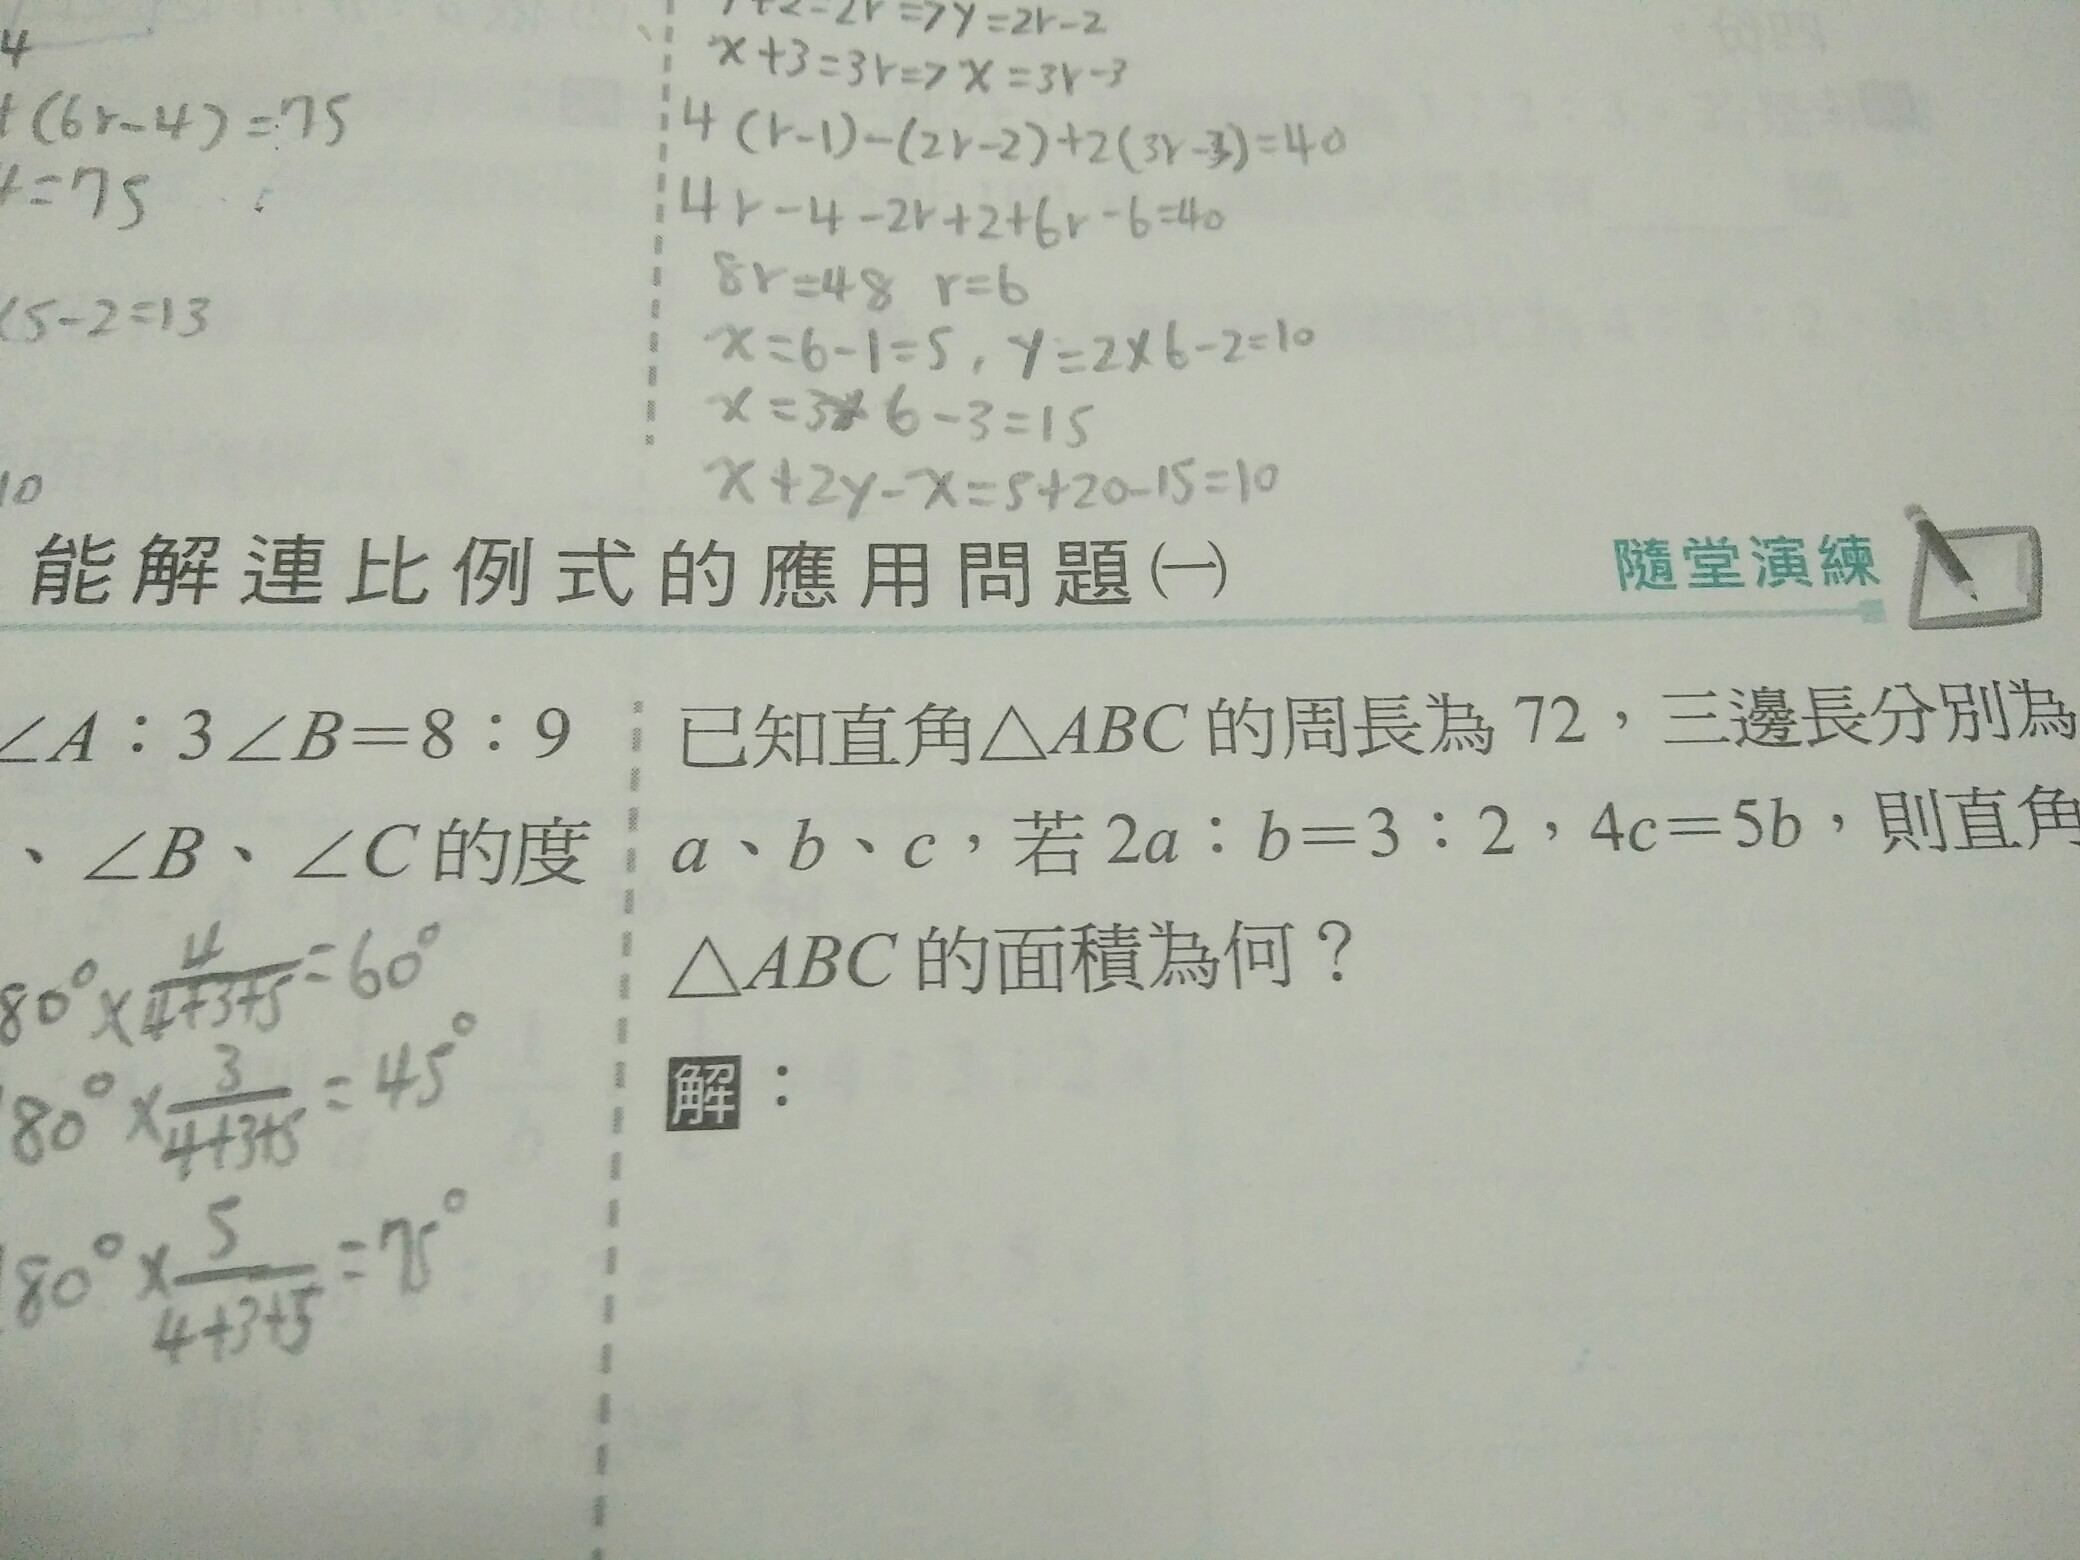 4
(6r-4)=75
=75
5-2=13
10
y=2r-2
x+3=3r=>x=3r-3
4(r-1)-(2r-2)+2(3r-3)=40
4r-4-2r+2+6r-6=40
8r=48 r=6
x=6-1=5,y=2×6-2=10
x=3×6-3=15
x+2y-x=5+20-15=10
能解連比例式的應用問題㈠
隨堂演練
∠A:3∠B=8:9
、∠B、∠C的度
80°×4/(4+3+5)=60°
180°×3/(4+3+5)=45°
180°×5/(4+3+5)=75°
已知直角△ABC的周長為72,三邊長分別為
a、b、c,若2a:b=3:2,4c=5b,則直角
△ABC的面積為何?
解: